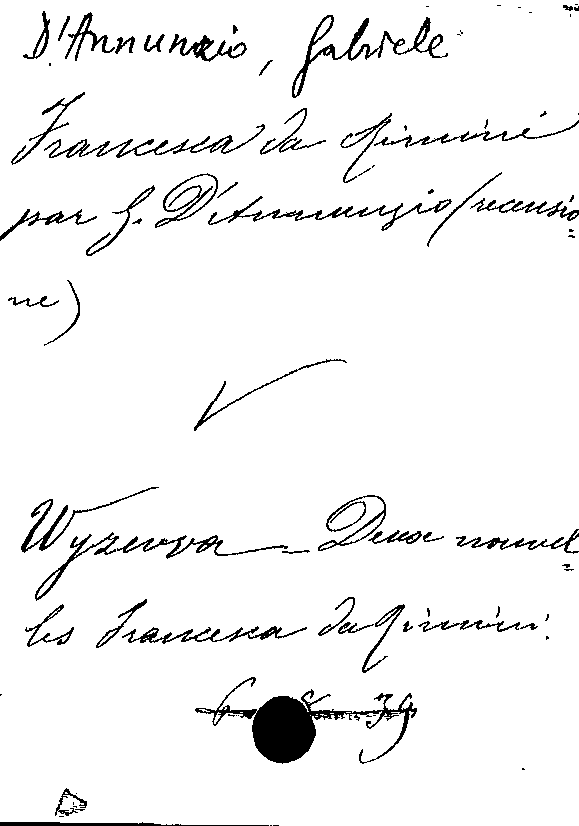 D'Annunzio, Gabriele
Francesca da Rimini
par G. D'Annunzio (recensio=
ne)
Wyzewa - Deux nouvel=
les Francesca da Rimini.
6 8 39